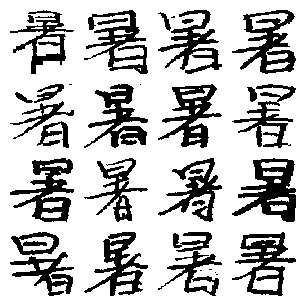 暑暑暑暑
暑暑暑暑
暑暑暑暑
暑暑暑暑